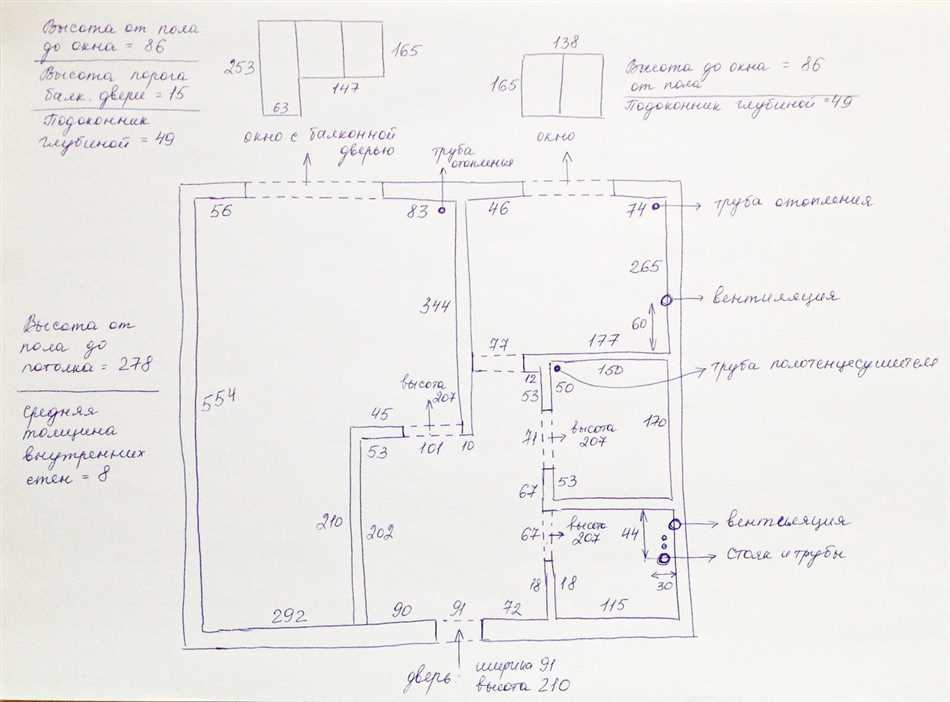 Высота от пола
до окна = 86
Высота порога
балк. двери = 15
Подоконник
глубиной = 49
253
165
147
63
окно с балконной
дверью
138
165
окно
Высота до окна = 86
от пола
Подоконник глубиной = 49
труба
отопления
56
83
46
74
труба отопления
265
344
вентиляция
60
77
177
Высота от
пола до
потолка = 278
средняя
толщина
внутренних
стен = 8
554
12
150
50
труба полотенцесушителя
53
высота
207
45
53
101
10
71
высота
207
170
67
53
210
202
67
высота
207
44
вентиляция
стояк и трубы
30
18
18
115
292
90
91
72
дверь:
ширина 91
высота 210